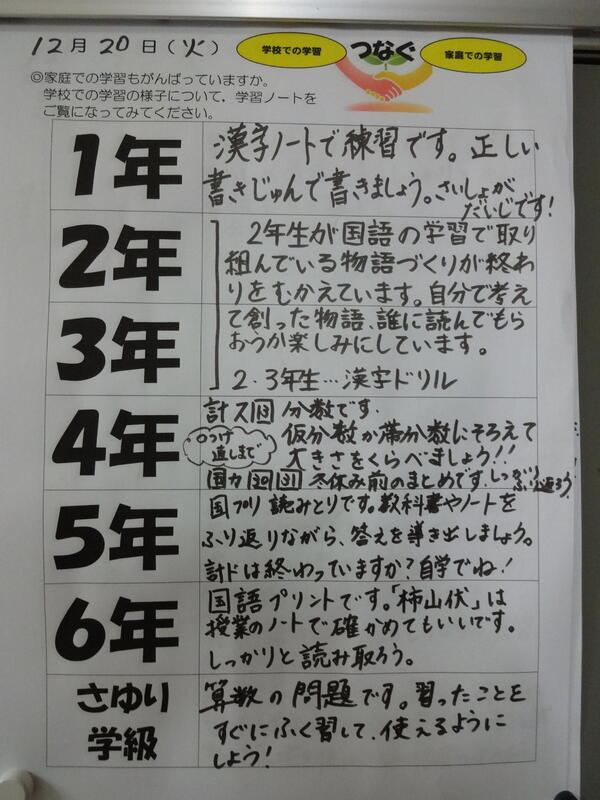 12月20日(火)
学校での学習
つなぐ
家庭での学習
◎家庭での学習もがんばっていますか。
学校での学習の様子について，学習ノートを
ご覧になってみてください。
1年
漢字ノートで練習です。正しい
書きじゅんで書きましょう。さいしょが
だいじです!
2年
3年
2年生が国語の学習で取り
組んでいる物語づくりが終わ
りをむかえています。自分で考え
て創った物語、誰に読んでもら
おうか楽しみにしています。
2・3年生…漢字ドリル
4年
計ス13 分数です。
○つけ
直しまで
仮分数か帯分数にそろえて
大きさをくらべましょう!!
国カ30 31 冬休み前のまとめです。しっかり
ふり返ろう
5年
国プリ 読みとりです。教科書やノートを
ふり返りながら、答えを導き出しましょう。
計ドは終わっていますか?自学でね!
6年
国語プリントです。「柿山伏」は
授業のノートで確かめてもいいです。
しっかりと読み取ろう。
さゆり
学級
算数の問題です。習ったことを
すぐにふく習して、使えるように
しよう!